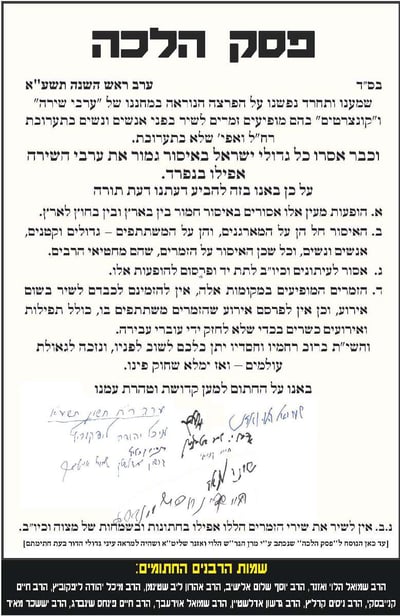 פסק הלכה
בס"ד
ערב ראש השנה תשע"א
שמענו ותחרד נפשנו על הפרצה הנוראה במחננו של "ערבי שירה"
ו"קונצרטים" בהם מופיעים זמרים לשיר בפני אנשים ונשים בתערוכת
רח"ל ואפי' שלא בתערוכת.
וכבר אסרו כל גדולי ישראל באיסור גמור את ערבי השירה
אפילו בנפרד.
על כן באנו בזה להביע דעתנו דעת תורה
א. הופעות מעין אלו אסורים באיסור חמור בין בארץ ובין בחוץ לארץ.
ב. האיסור חל הן על המארגנים, והן על המשתתפים – גדולים וקטנים,
אנשים ונשים, וכל שכן האיסור על הזמרים, שהם מחטיאי הרבים.
ג. אסור לעיתונים וכיו"ב לתת יד ופרסום להופעות אלו.
ד. הזמרים המופיעים במקומות אלה, אין להזמינם לכבדם לשיר בשום
אירוע, וכן אין לפרסם אירוע שהזמרים משתתפים בו, כולל תפילות
ואירועים כשרים בכדי שלא לחזק ידי עוברי עבירה.
והשי"ת ברוב רחמיו וחסדיו יתן בלבם לשוב לפניו, ונזכה לגאולת
עולמים – ואז ימלא שחוק פינו.
באנו על החתום למען קדושת וטהרת עמנו
ערב ר"ח חשון תשע"א
מיכל יהודה ליפקוביץ
נ.ב. אין לשיר את שירי הזמרים הללו אפילו בחתונות ובשמחות של מצוה וכיו"ב.
[עד כאן הנוסח ל"פסק הלכה" שנכתב ע"י מרן הגר"ש הלוי ואזנר שליט"א ושהיה למראה עיני גדולי הדור בעת חתימתם]
שמות הרבנים החתומים:
הרב שמואל הלוי ואזנר, הרב יוסף שלום אלישיב, הרב אהרון ליב שטינמן, הרב מיכל יהודה ליפקוביץ, הרב חיים
קנייבסקי, הרב ניסים קרליץ, הרב גרשון אדלשטיין, הרב שמואל אוירבעך, הרב חיים פינחס שינברג, הרב יששכר מאיר